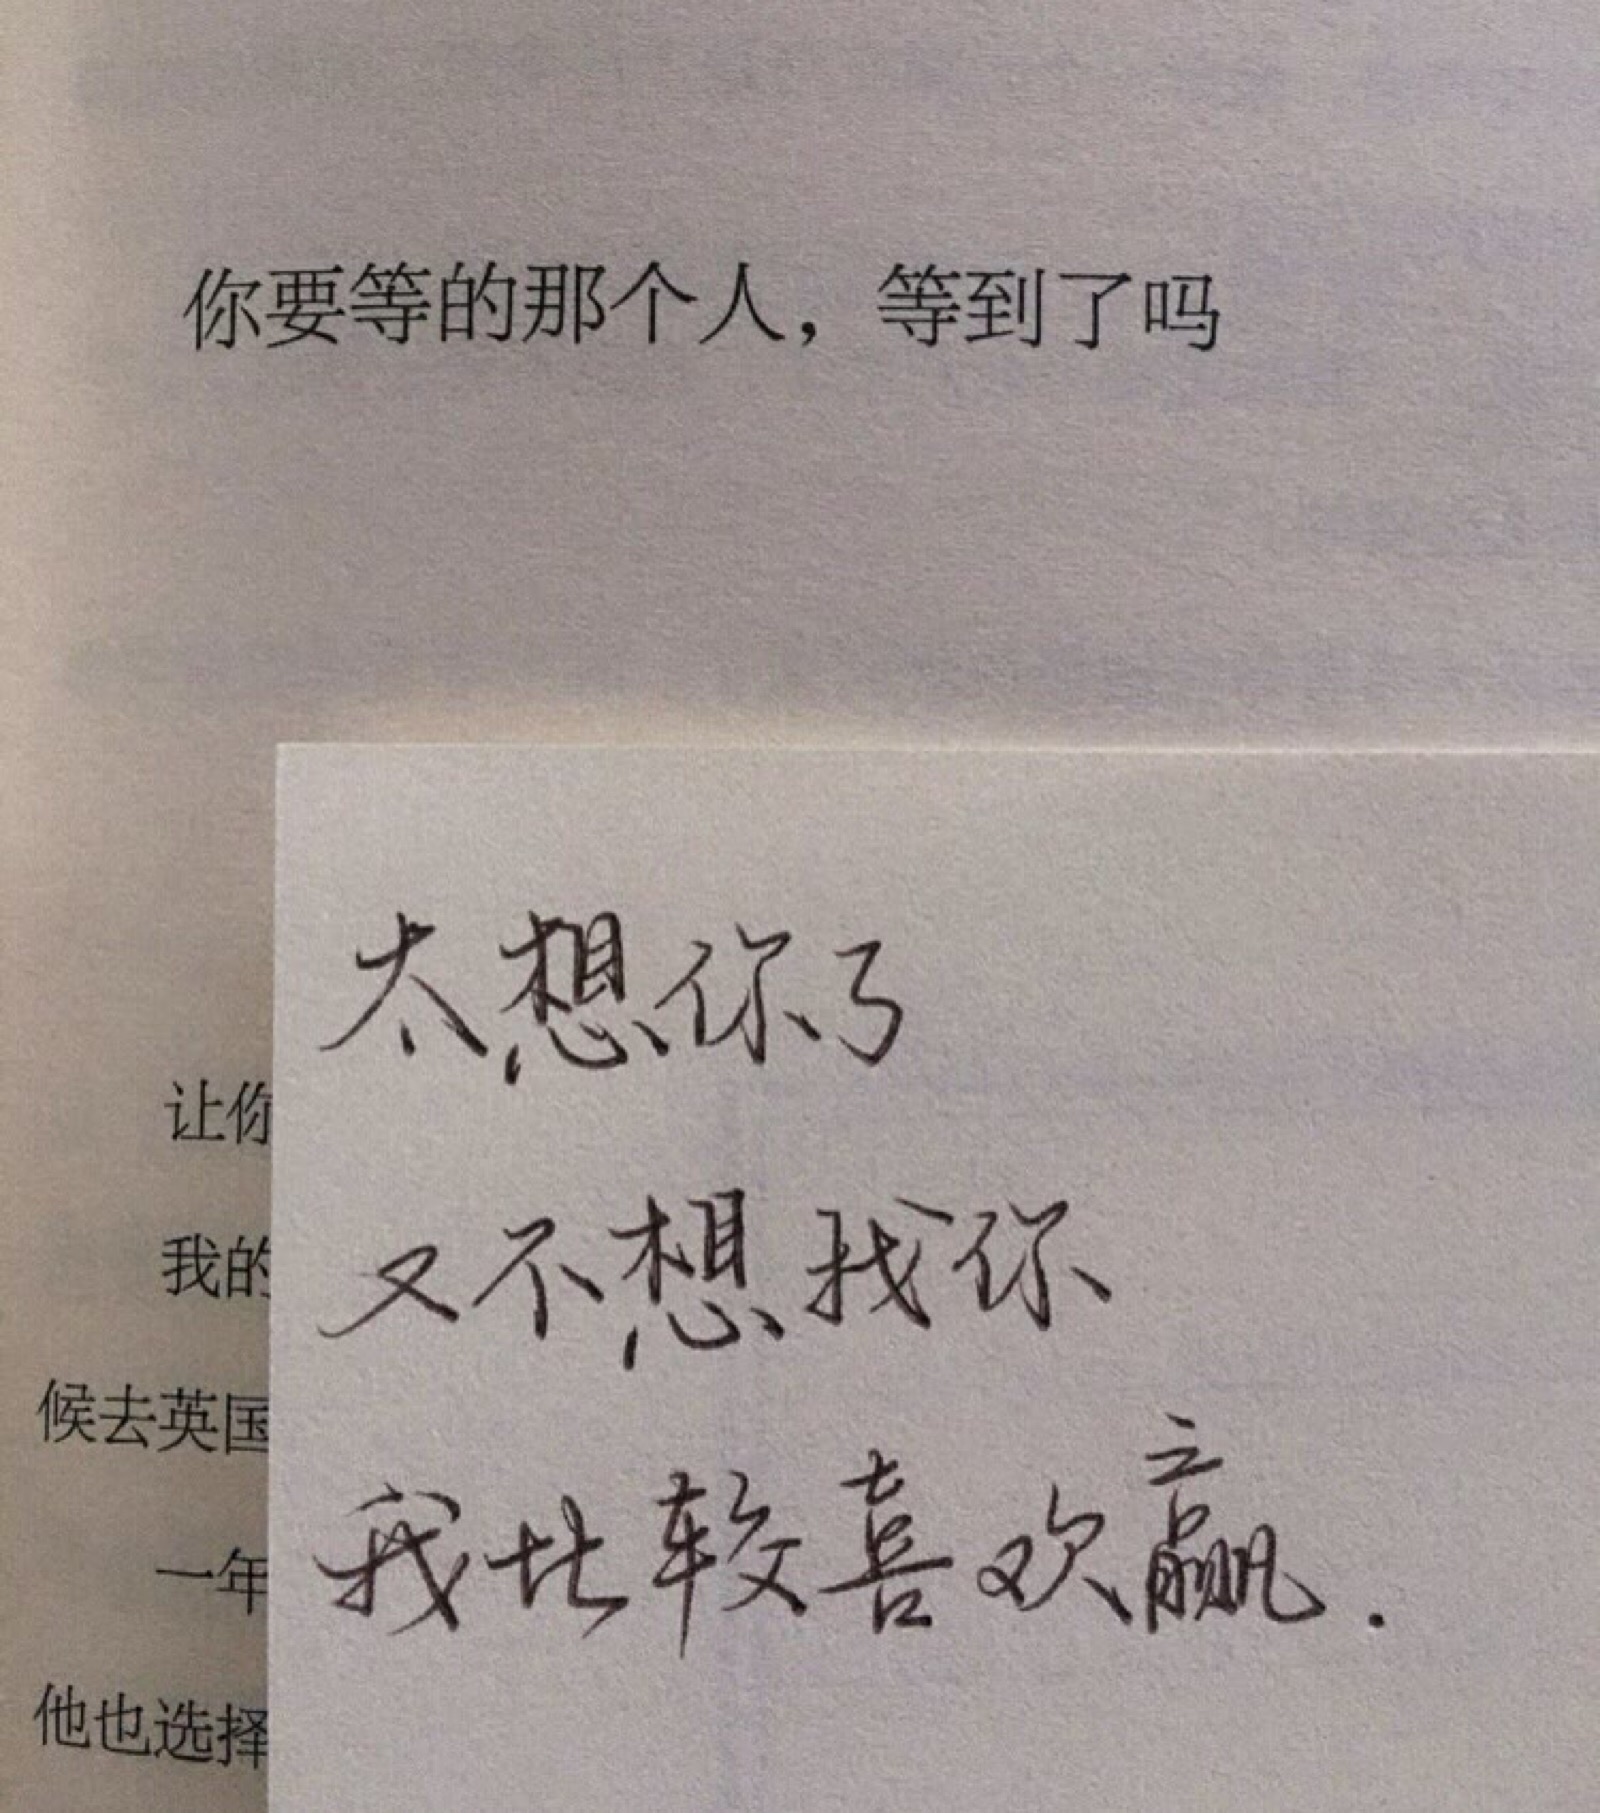 你要等的那个人，等到了吗
太想你了
又不想找你
我比较喜欢赢.
让你
我的
候去英国
一年
他也选择